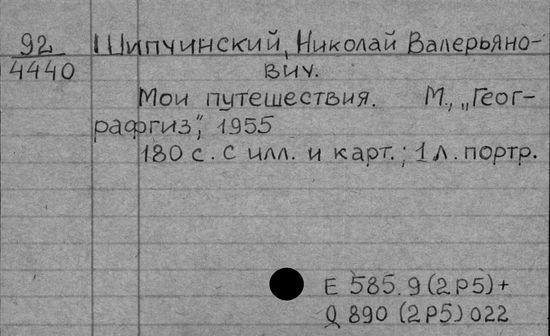 92
4440
Шипчинский, Николай Валерьяно-
вич.
Мои путешествия. М., „Геог-
рафгиз", 1955
180 с. с илл. и карт.; 1 л. портр.
Е 585.9 (2Р5) +
Q 890 (2Р5) 022